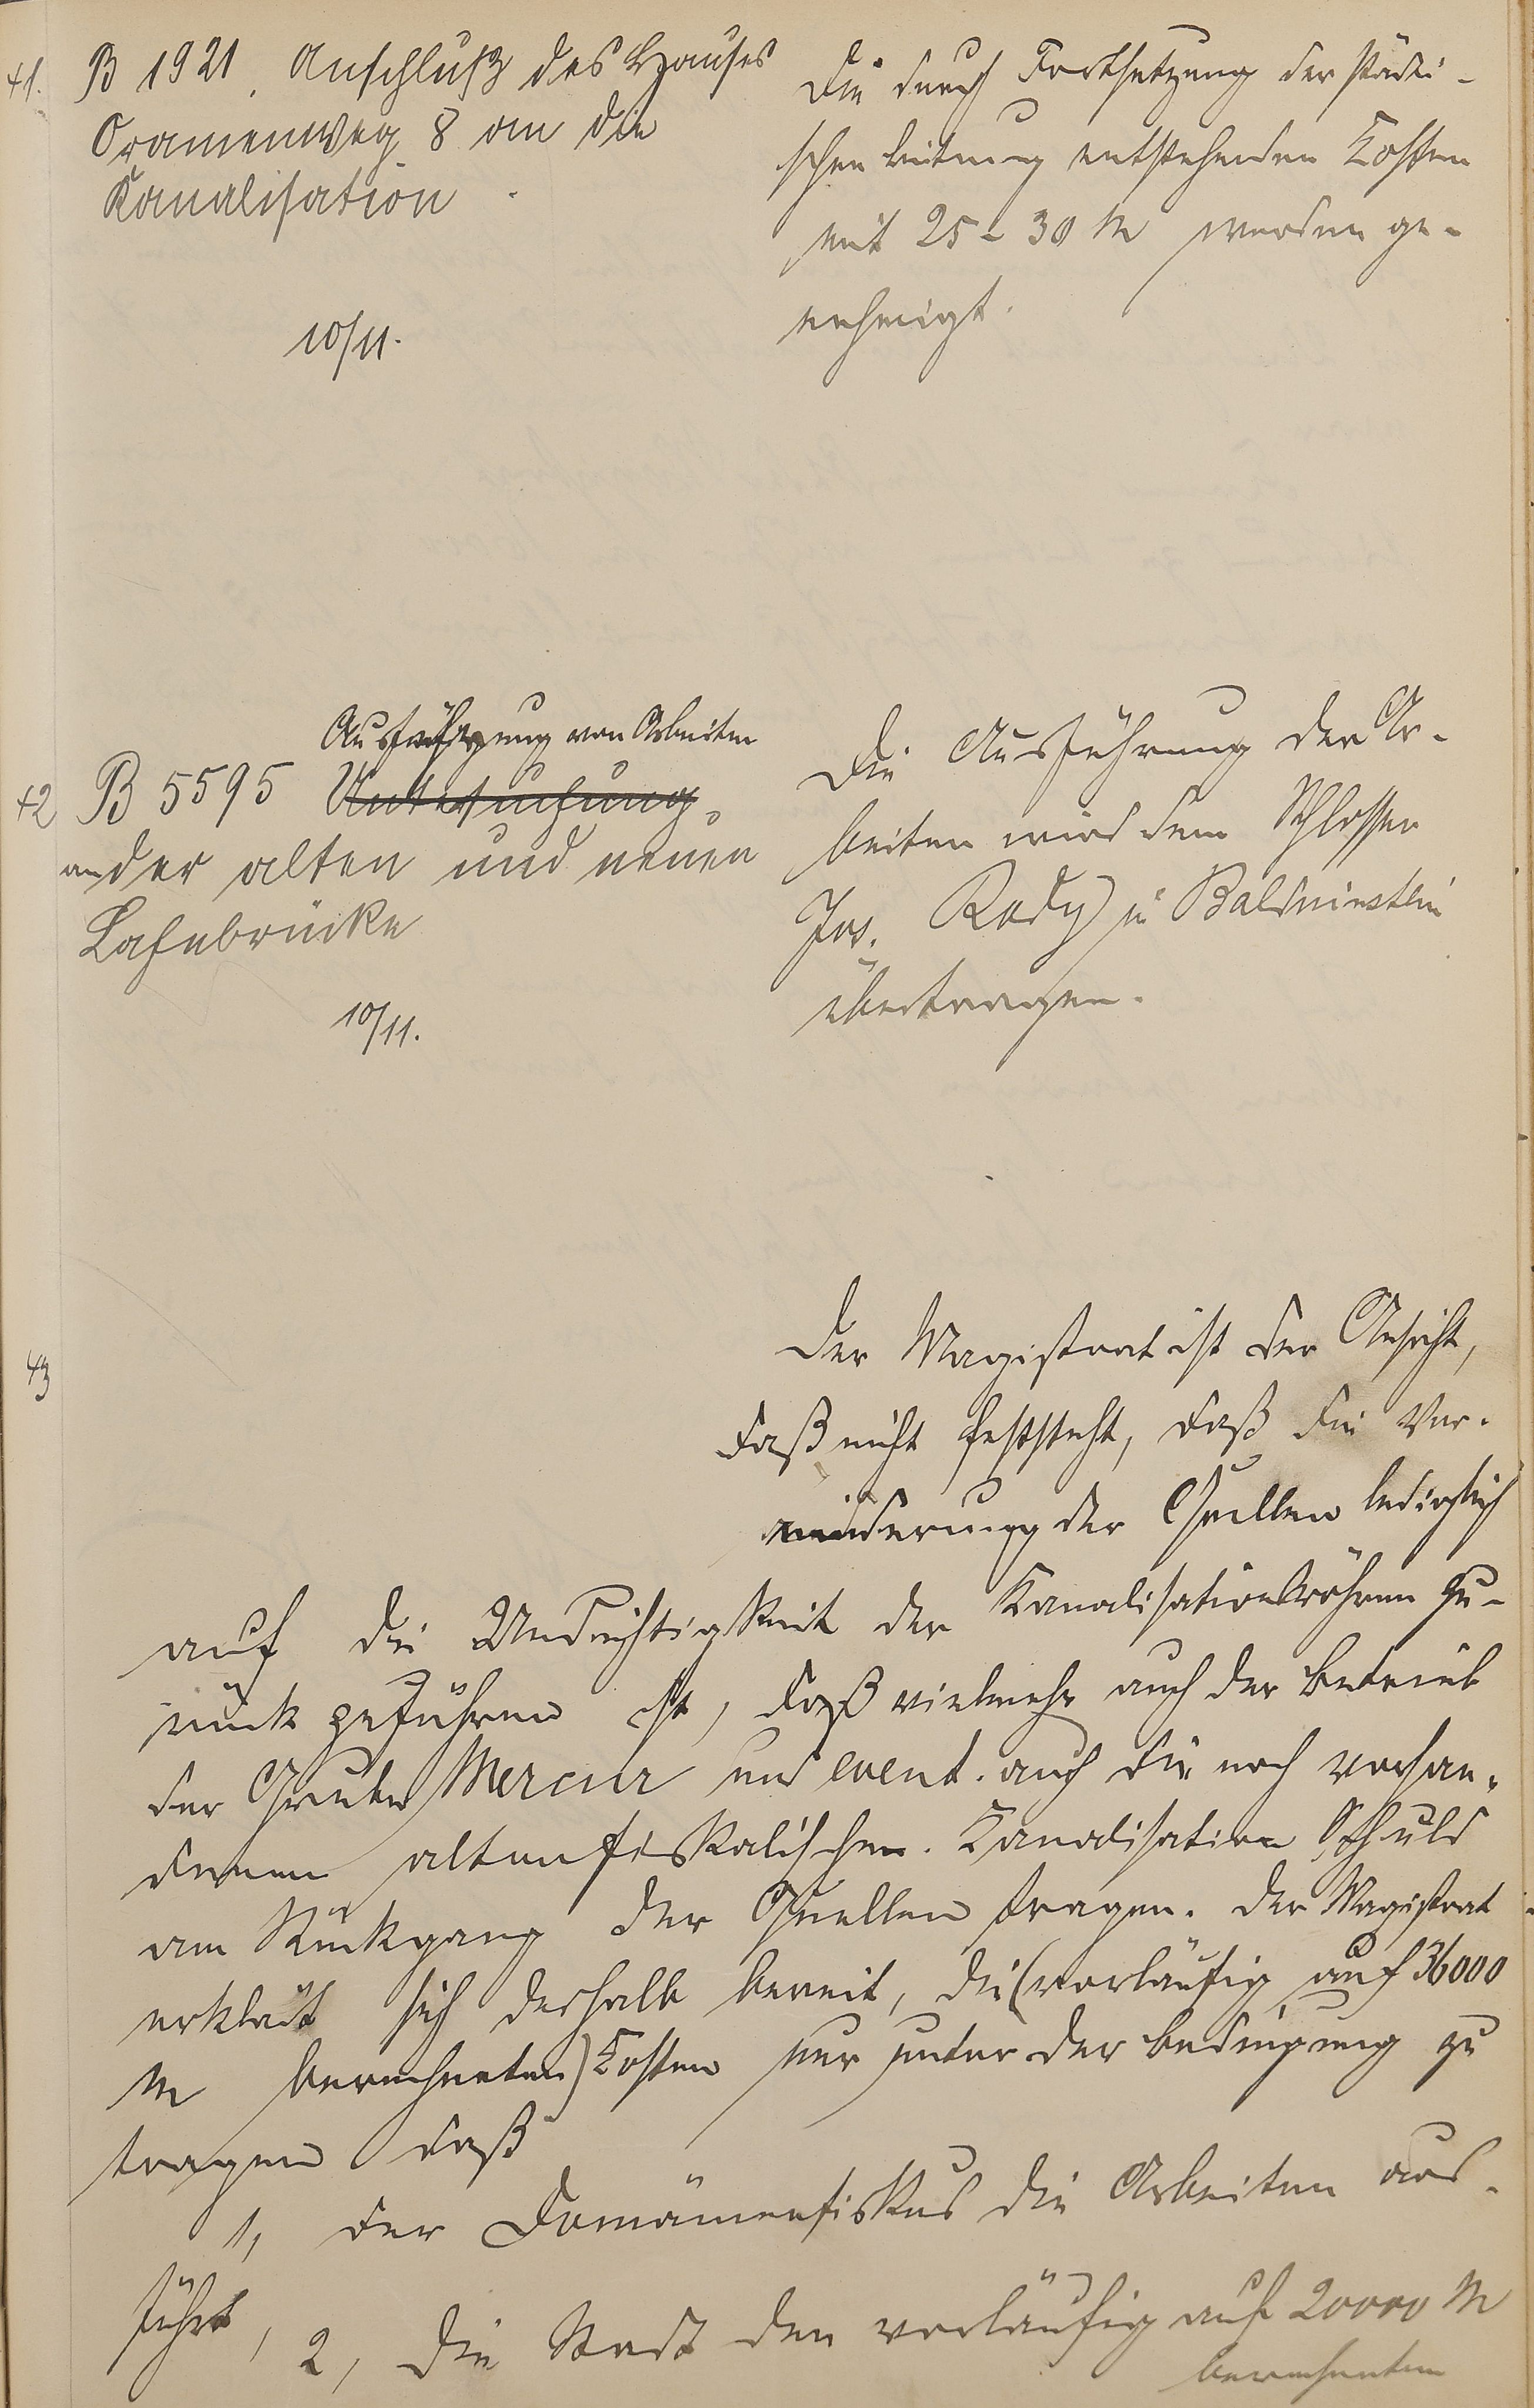 41.
B 1921. Anschluß des Hauses
Oranienweg 8 an die
Kanalisation.
10/11.
Die durch Fortsetzung der städti-
schen Leitung entstehenden Kosten
mit 25-30 M werden ge-
nehmigt.
42
Ausführung von Arbeiten
B 5595 Untersuchung
an der alten und neuen
Lahnbrücke
10/11.
Die Ausführung der Ar-
beiten wird dem Schlosser
Jos. Rody in Balduinstein
übertragen.
43
Der Magistrat ist der Ansicht,
daß nicht feststeht, daß die Ver-
minderung der Quellen lediglich
auf die Undichtigkeit der Kanalisationsröhren zu-
rück zuführen ist, daß vielmehr auch der Betrieb
der Grube Mercur und event. auch die noch vorhan-
denen alten fiskalischen Kanalisation Schuld
am Rückgang der Quellen tragen. Der Magistrat
erklärt sich deshalb bereit, die (vorläufig auf 36000
M berechneten) Kosten nur unter der Bedingung zu
tragen daß
1, der Domänenfiskus die Arbeiten aus-
führt, 2, die Stadt den vorläufig auf 20000 M
berechneten